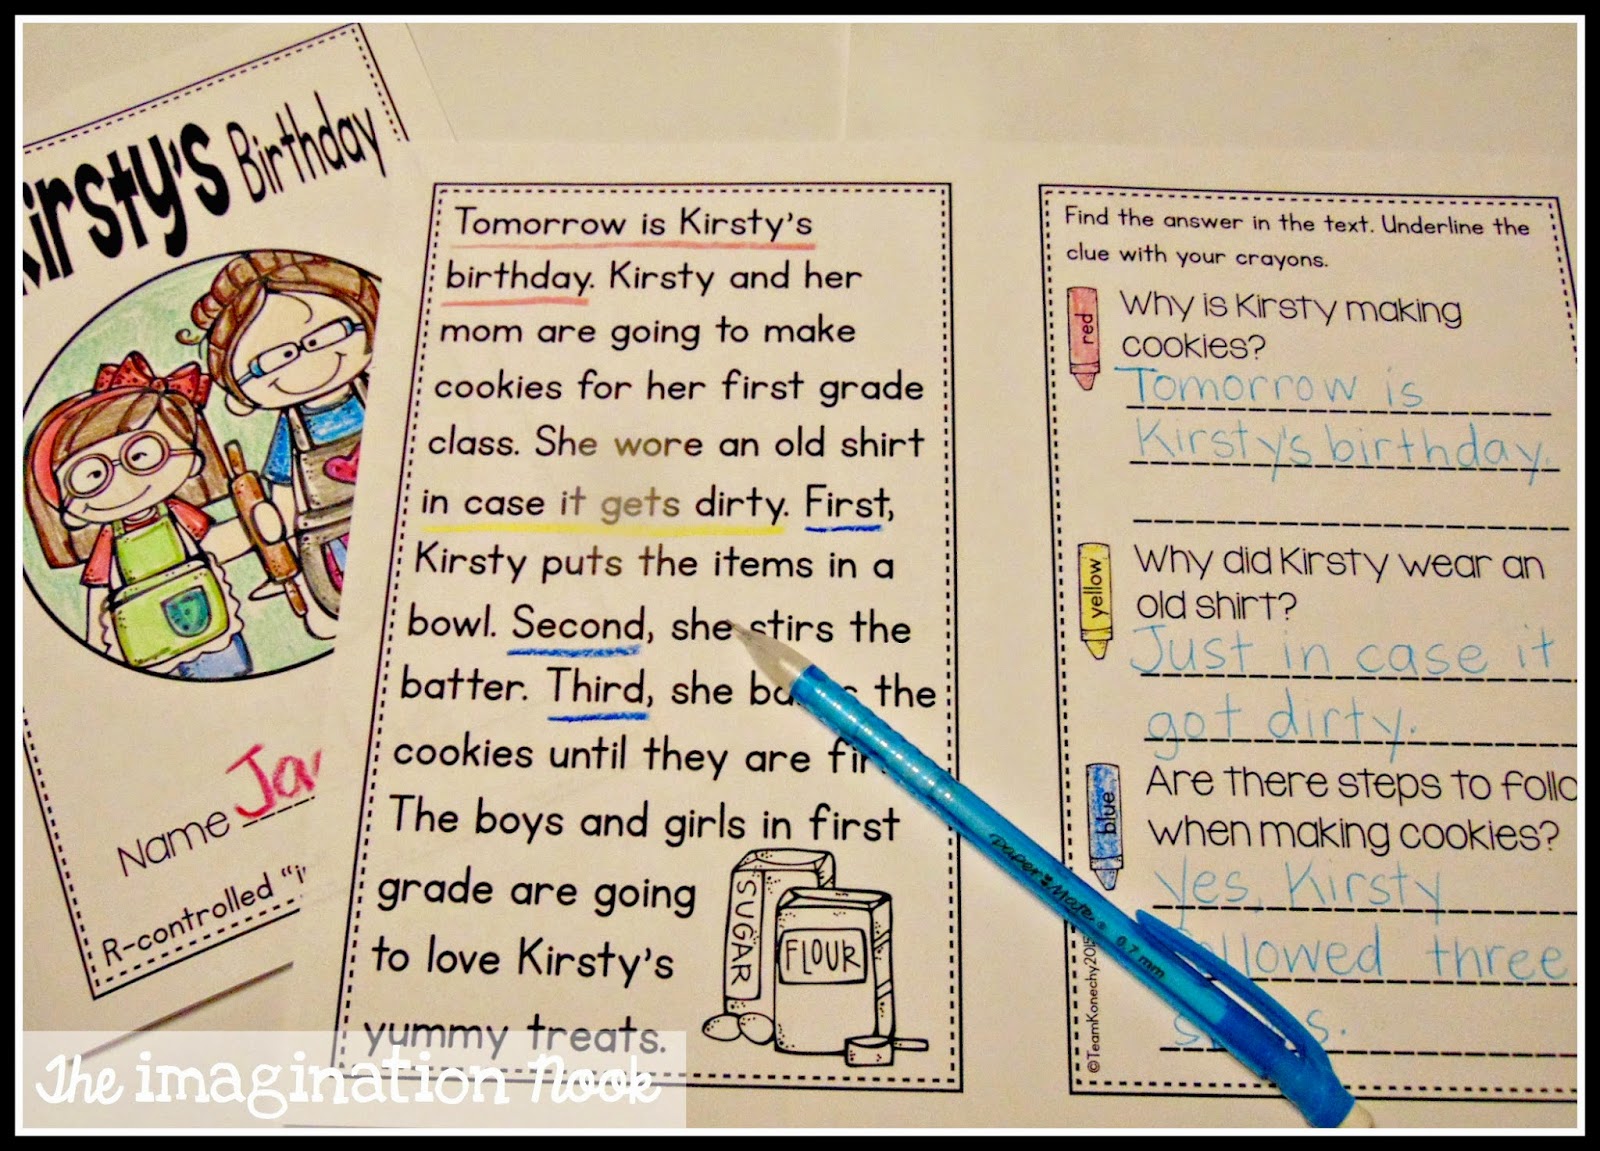 Kirsty's Birthday
Name
R-controlled
Tomorrow is Kirsty's
birthday. Kirsty and her
mom are going to make
cookies for her first grade
class. She wore an old shirt
in case it gets dirty. First,
Kirsty puts the items in a
bowl. Second, she stirs the
batter. Third, she the
cookies until they are
The boys and girls in first
grade are going
to love Kirsty's
yummy treats.
SUGAR
FLOUR
Find the answer in the text. Underline the
clue with your crayons.
red
Why is Kirsty making
cookies?
Tomorrow is
Kirsty's birthday.
yellow
Why did Kirsty wear an
old shirt?
Just in case it
got dirty.
blue
Are there steps to
when making cookies?
Yes, Kirsty
followed three
©TeamKonechy2015
Paper Mate 0.7 mm
The imagination Nook